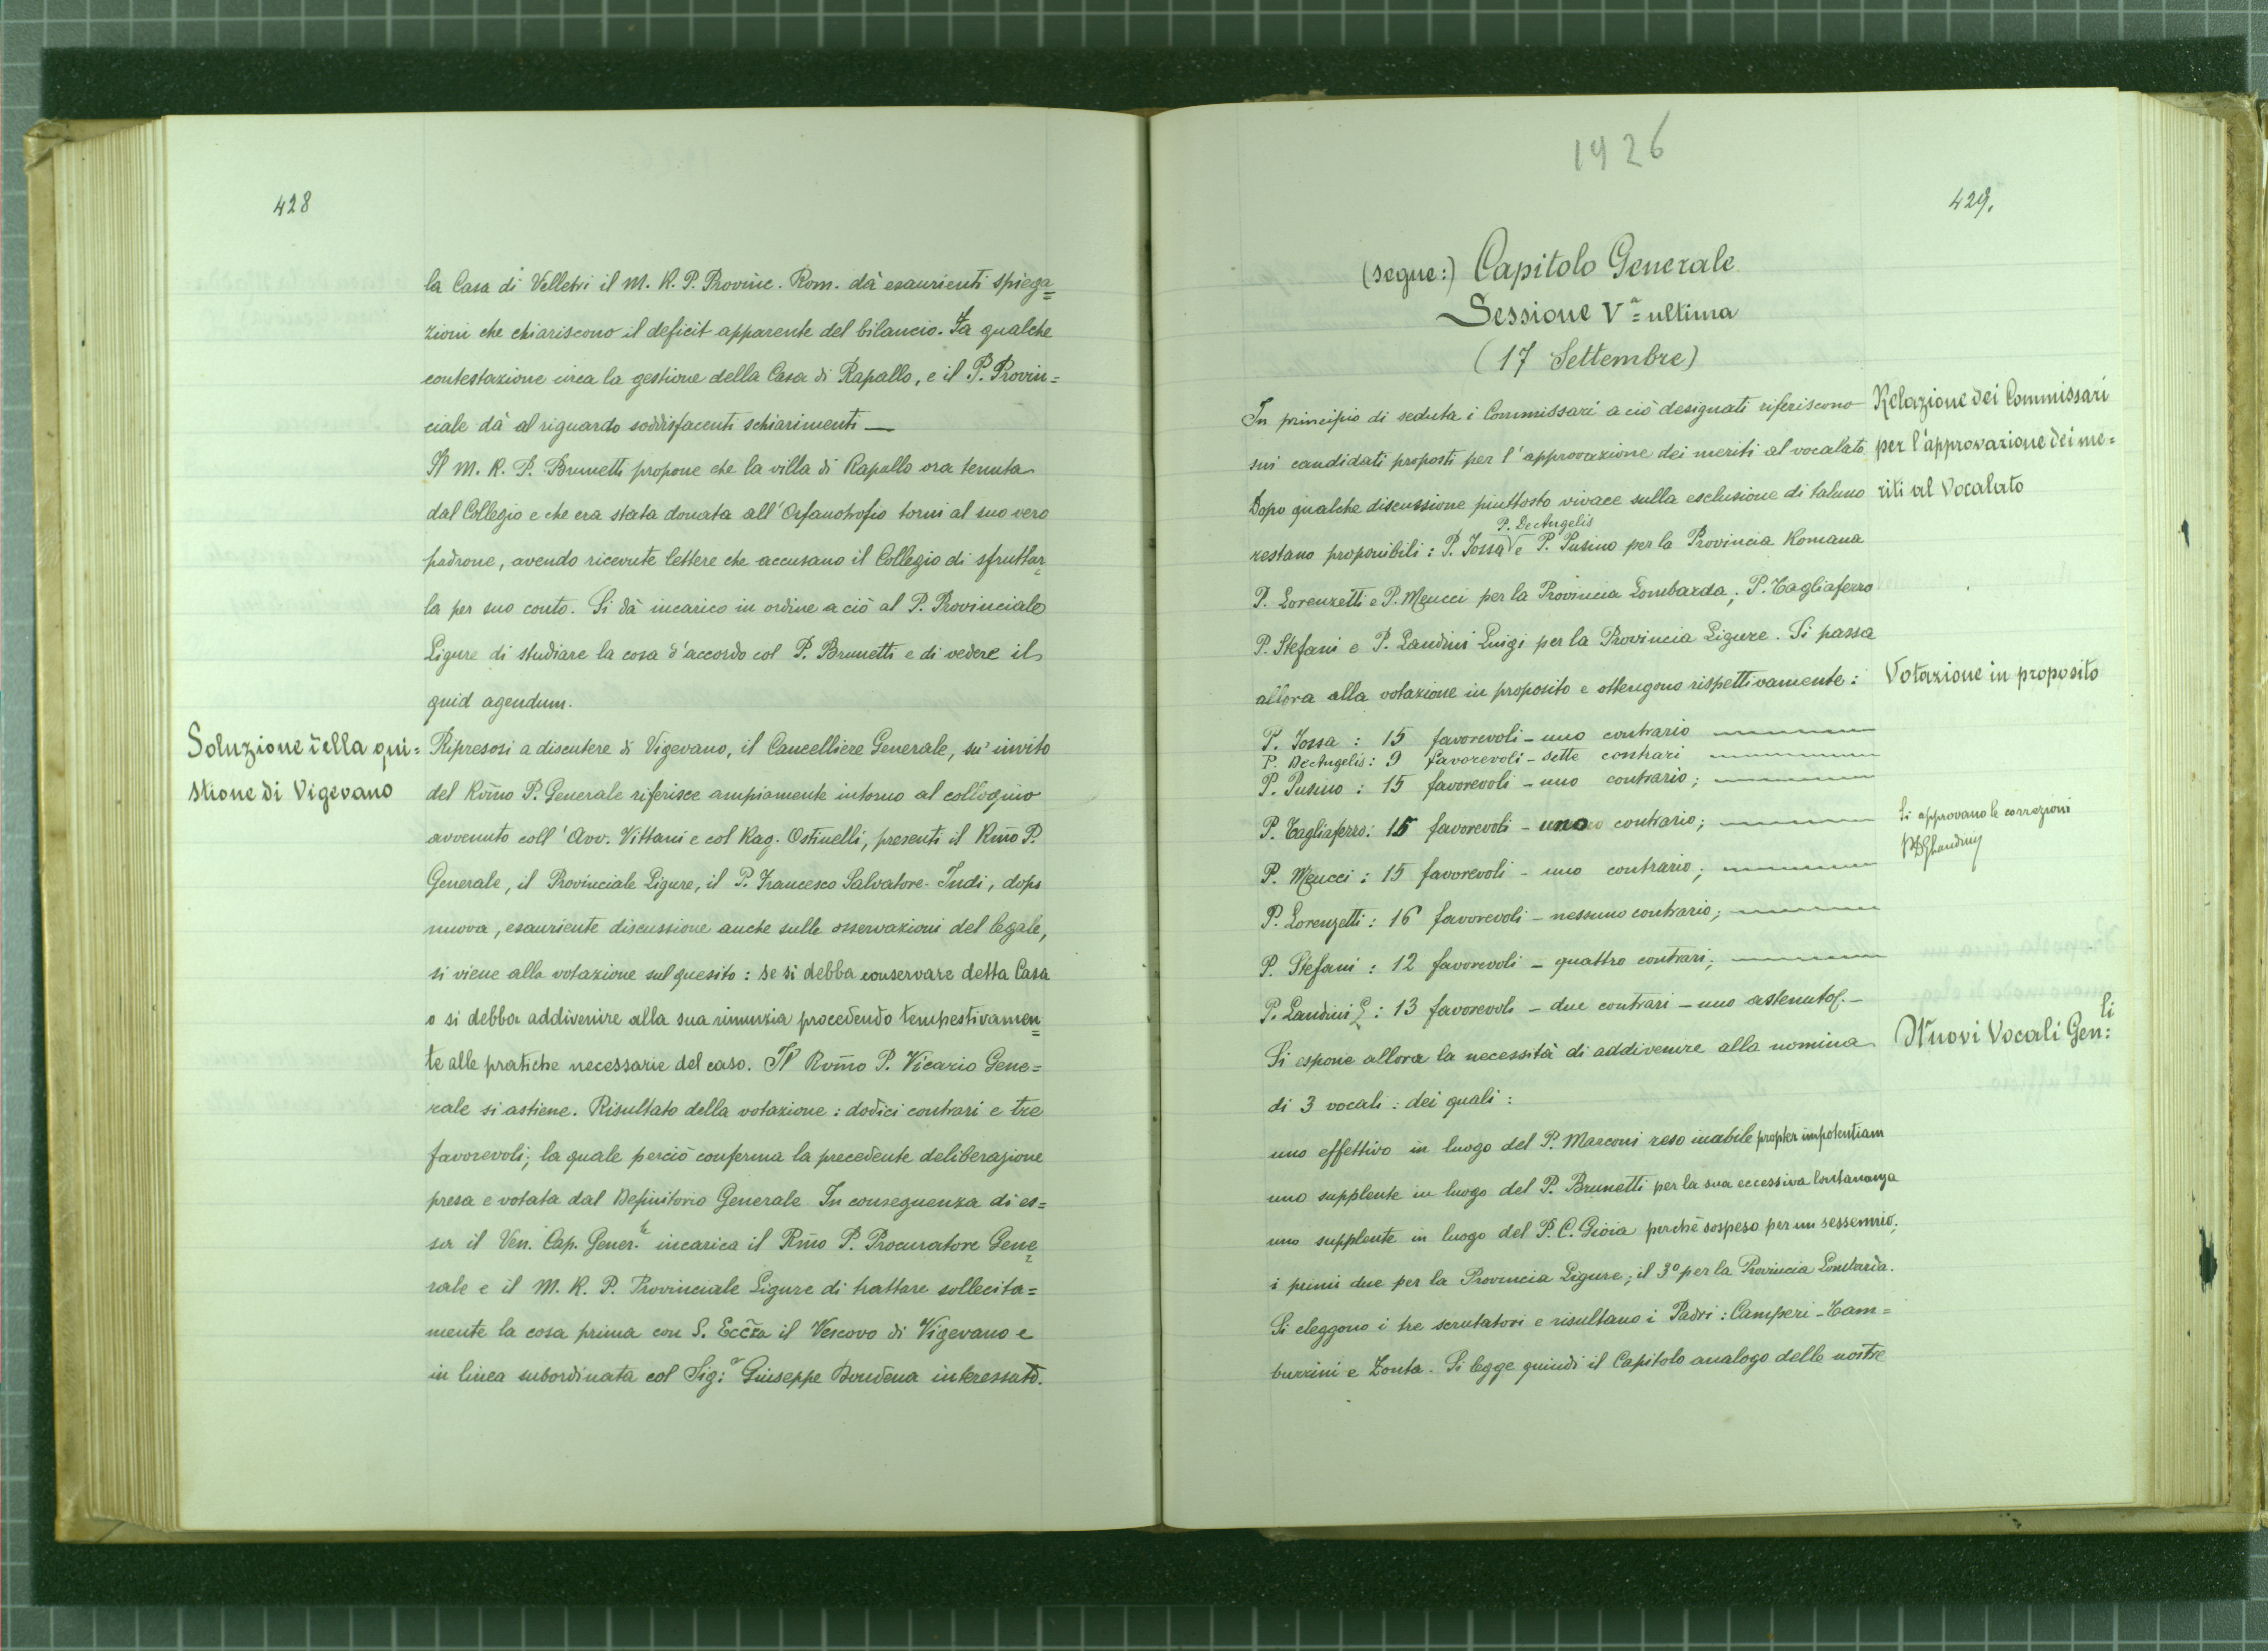 428
la Casa di Velletri il M. R. P. Provinc. Rom. dà esaurienti spiega=
zioni che chiariscono il deficit apparente del bilancio. Fa qualche
contestazione circa la gestione della Casa di Rapallo, e il P. Provin=
ciale dà al riguardo soddisfacenti schiarimenti —
Il M. R. P. Brunetti propone che la villa di Rapallo ora tenuta
dal Collegio e che era stata donata all'Orfanotrofio torni al suo vero
padrone, avendo ricevute lettere che accusano il Collegio di sfruttar=
la per suo conto. Si dà incarico in ordine a ciò al P. Provinciale
Ligure di studiare la cosa d'accordo col P. Brunetti e di vedere il
quid agendum.
Soluzione della qui=
stione di Vigevano
Ripresosi a discutere di Vigevano, il Cancelliere Generale, su' invito
del Rm̃o P. Generale riferisce ampiamente intorno al colloquio
avvenuto coll'Avv. Vittani e col Rag. Ostinelli, presenti il Rm̃o P.
Generale, il Provinciale Ligure, il P. Francesco Salvatore. Indi, dopo
nuova, esauriente discussione anche sulle osservazioni del legale,
si viene alla votazione sul quesito: se si debba conservare detta Casa
o si debba addivenire alla sua rinunzia procedendo tempestivamen=
te alle pratiche necessarie del caso. Il Rvm̃o P. Vicario Gene=
rale si astiene. Risultato della votazione: dodici contrari e tre
favorevoli; la quale perciò conferma la precedente deliberazione
presa e votata dal Definitorio Generale. In conseguenza di es=
sa il Ven. Cap. Gener.le incarica il Rm̃o P. Procuratore Gene=
rale e il M. R. P. Provinciale Ligure di trattare sollecita=
mente la cosa prima con S. Ecc̃za il Vescovo di Vigevano e
in linea subordinata col Sig:r Giuseppe Bondena interessato.
1926
429.
(segue:) Capitolo Generale
Sessione Va = ultima
(17 Settembre)
In principio di seduta i Commissari a ciò designati riferiscono
sui candidati proposti per l'approvazione dei meriti al vocalato.
Relazione dei Commissari
per l'approvazione dei me=
riti al Vocalato
Dopo qualche discussione piuttosto vivace sulla esclusione di taluno
P. De Angelis
restano proponibili: P. Jossa e P. Pusino per la Provincia Romana
P. Lorenzetti e P. Meucci per la Provincia Lombarda; P. Tagliaferro
P. Stefani e P. Landini Luigi per la Provincia Ligure. Si passa
allora alla votazione in proposito e ottengono rispettivamente:
Votazione in proposito
P. Jossa: 15 favorevoli – uno contrario
P. De Angelis: 9 favorevoli – sette contrari
P. Pusino: 15 favorevoli – uno contrario;
P. Tagliaferro: 15 favorevoli – uno contrario;
Si approvano le correzioni
P. Meucci: 15 favorevoli – uno contrario;
P. Lorenzetti: 16 favorevoli – nessuno contrario;
P. Stefani: 12 favorevoli – quattro contrari;
P. Landini L: 13 favorevoli – due contrari – uno astenuto. –
Si espone allora la necessità di addivenire alla nomina
Nuovi Vocali Gen:li
di 3 vocali: dei quali:
uno effettivo in luogo del P. Marconi reso inabile propter impotentiam
uno supplente in luogo del P. Brunetti per la sua eccessiva lontananza
uno supplente in luogo del P. C. Gioia perchè sospeso per un sessennio;
i primi due per la Provincia Ligure; il 3º per la Provincia Lombarda.
Si eleggono i tre scrutatori e risultano i Padri: Camperi – Tam=
burrini e Zonta. Si legge quindi il Capitolo analogo delle nostre